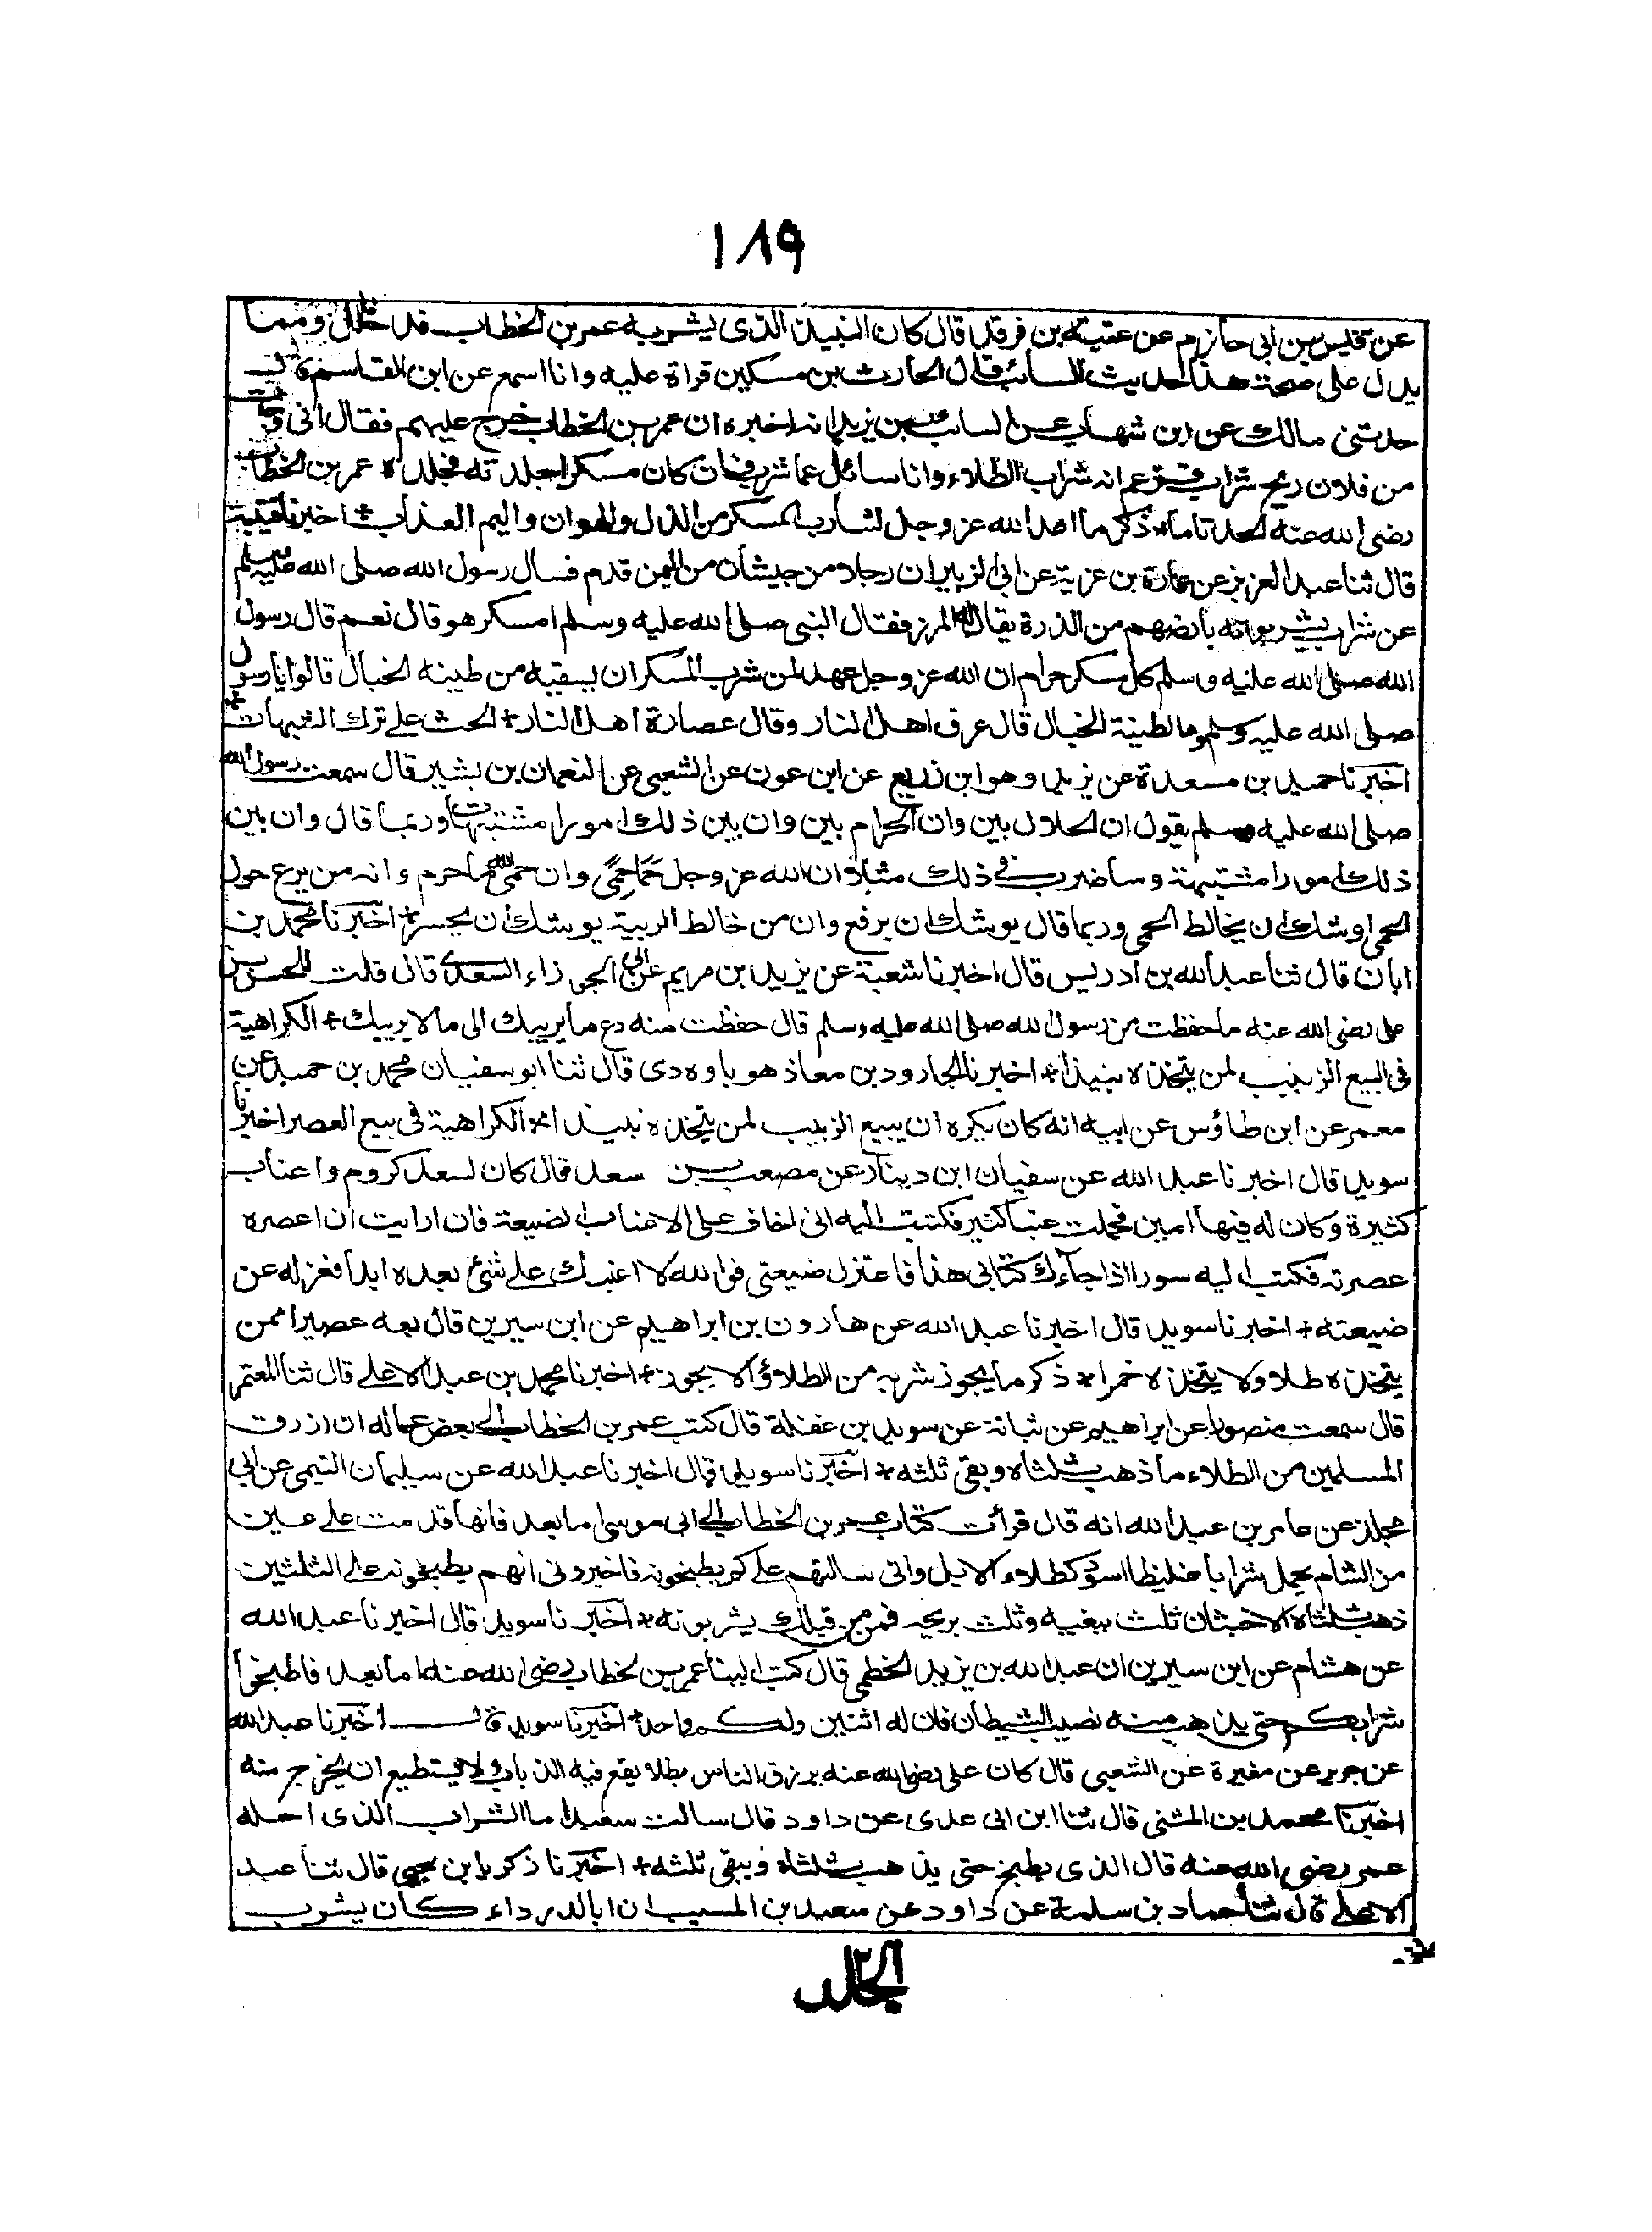 ١٨٩
عن قيس بن ابي حازم عن عتبة بن فرقد قال كان النبيذ الذى يشربه عمر بن الخطاب قد خلل ومما
يدل على صحة هذا حديث السائب قال الحارث بن مسكين قراة عليه وانا اسمع عن ابن القاسم قال
حدثنى مالك عن ابن شهاب عن السائب بن يزيد انه اخبره ان عمر بن الخطاب خرج عليهم فقال انى وجدت
من فلان ريح شراب فزعم انه شراب الطلاء وانا سائل عما شرب فان كان مسكرا جلدته فجلده عمر بن الخطاب
رضى الله عنه الحد تاما * ذكر ما اعد الله عز وجل لشارب المسكر من الذل والهوان واليم العذاب * اخبرنا قتيبة
قال ثنا عبد العزيز عن عمارة بن غزية عن ابى الزبير ان رجلا من جيشان من اليمن قدم فسال رسول الله صلى الله عليه وسلم
عن شراب يشربونه بأرضهم من الذرة يقال له المزر فقال النبى صلى الله عليه وسلم امسكر هو قال نعم قال رسول
الله صلى الله عليه وسلم كل مسكر حرام ان الله عز وجل عهد لمن شرب المسكر ان يسقيه من طينة الخبال قالوا يا رسول
صلى الله عليه وسلم وما طينة الخبال قال عرق اهل النار وقال عصارة اهل النار + الحث على ترك الشبهات +
اخبرنا حميد بن مسعدة عن يزيد وهو ابن زريع عن ابن عون عن الشعبى عن النعمان بن بشير قال سمعت رسول الله
صلى الله عليه وسلم يقول ان الحلال بين وان الحرام بين وان بين ذلك امورا مشتبهات وربما قال وان بين
ذلك امورا مشتبهة وساضرب فى ذلك مثلا ان الله عز وجل حما حمى وان حمى الله ما حرم وانه من يرع حول
الحمى اوشك ان يخالط الحمى وربما قال يوشك ان يرفع وان من خالط الريبة يوشك ان يجسر + اخبرنا محمد بن
ابان قال ثنا عبد الله بن ادريس قال اخبرنا شعبة عن يزيد بن مريم عن ابى الجوزاء السعدى قال قلت للحسن بن
على رضى الله عنه ما حفظت من رسول الله صلى الله عليه وسلم قال حفظت منه دع ما يريبك الى ما لا يريبك + الكراهية
فى البيع الزبيب لمن يتخذه نبيذا + اخبرنا الجارود بن معاذ هو باوه دى قال ثنا ابو سفيان محمد بن حميد عن
معمر عن ابن طاؤس عن ابيه انه كان يكره ان يبيع الزبيب لمن يتخذه نبيذا * الكراهية فى بيع العصر اخبرنا
سويد قال اخبرنا عبد الله عن سفيان ابن دينار عن مصعب بن سعد قال كان لسعد كروم واعناب
كثيرة وكان له فيها امين فحملت عنبا كثير فكتب اليه انى اخاف على الاعناب الضيعة فان ارايت ان اعصره
عصرته فكتب اليه سورا اذا جآءك كتابى هذا فاعتزل ضيعتى فو الله لا اعتبرك على شئ بعده ابدا فعزله عن
ضيعته + اخبرنا سويد قال اخبرنا عبد الله عن هارون بن ابراهيم عن ابن سيرين قال بعه عصيرا ممن
يتخذه طلا ولا يتخذه خمرا * ذكر ما يجوز شربه من الطلاؤ الا يجوز + اخبرنا محمد بن عبد الاعلى قال ثنا المعتمر
قال سمعت منصورا عن ابراهيم عن نباتة عن سويد بن غفلة قال كتب عمر بن الخطاب الى بعض عماله ان ارزق
المسلمين من الطلاء ما ذهب ثلثاه وبقى ثلثه * اخبرنا سويد قال اخبرنا عبد الله عن سليمان التيمى عن ابى
مجلز عن عامر بن عبد الله انه قال قرأت كتاب عمر بن الخطاب الى ابى موسى اما بعد فانها قدمت على عير
من الشام يحمل شرابا غليظا اسود كطلاء الابل وانى سالتهم على كم يطبخونه فاخبرونى انهم يطبخونه على الثلثين
ذهب ثلثاه الاخبثان ثلث ببغيه وثلث بريحه فمر من قبلك يشربونه * اخبرنا سويد قال اخبرنا عبد الله
عن هشام عن ابن سيرين ان عبد الله بن يزيد الخطمى قال كتب الينا عمر بن الخطاب رضى الله عنه اما بعد فاطبخوا
شرابكم حتى يذهب منه نصيب الشيطان فان له اثنين ولكم واحد + اخبرنا سويد قال اخبرنا عبد الله
عن جرير عن مغيرة عن الشعبى قال كان على رضى الله عنه يرزق الناس بطلا يقع فيه الذباب ولا يستطيع ان يخرج منه
اخبرنا محمد بن المثنى قال ثنا ابن ابى عدى عن داود قال سالت سعيدا ما الشراب الذى احله
عمر رضى الله عنه قال الذى يطبخ حتى يذهب ثلثاه ويبقى ثلثه + اخبرنا زكريا بن يحيى قال ثنا عبد
الاعلى قال ثنا حماد بن سلمة عن داود عن سعيد بن المسيب ان ابا الدرداء كان يشرب